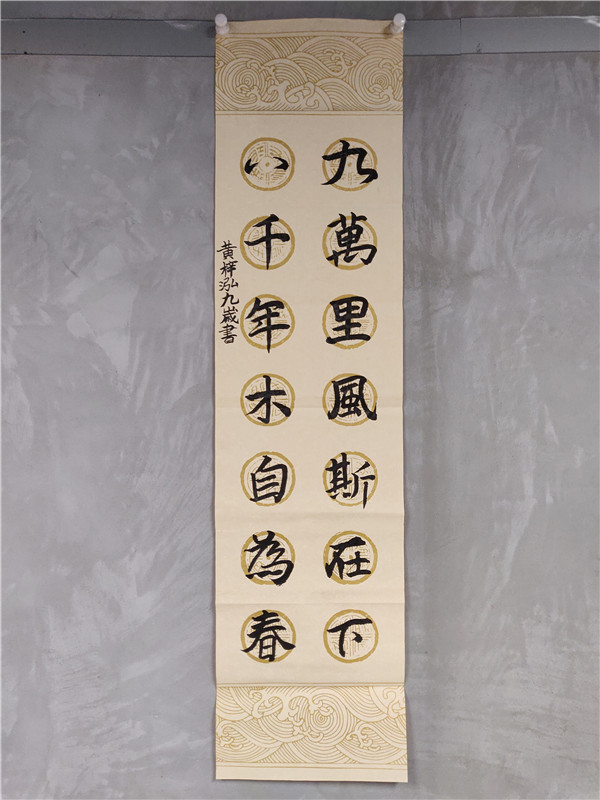 九萬里風斯在下
八千年木自為春
黃梓泓九歲書